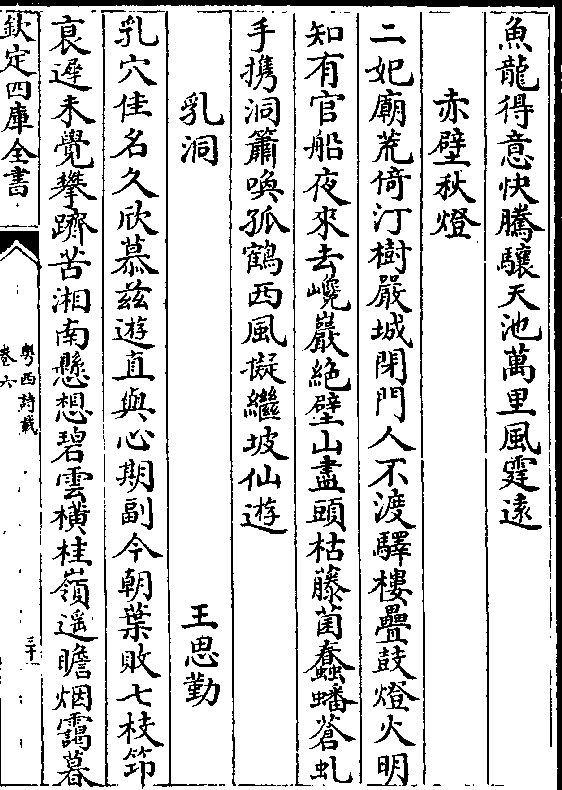 魚龍得意快騰驤天池萬里風霆遠
赤壁秋燈
二妃廟荒倚汀樹嚴城閉門人不渡驛樓疊鼓燈火明
知有官船夜來去巉巖絶壁山盡頭枯藤菌蠢蟠蒼虬
手携洞簫喚孤鶴西風擬繼坡仙遊
乳洞 王思勤
乳穴佳名久欣慕兹遊直與心期副今朝葉敗七枝笻
衰遲未覺攀躋苦湘南懸想碧雲橫桂嶺遥瞻烟靄暮
欽定四庫全書
粤西詩載
卷六
三十